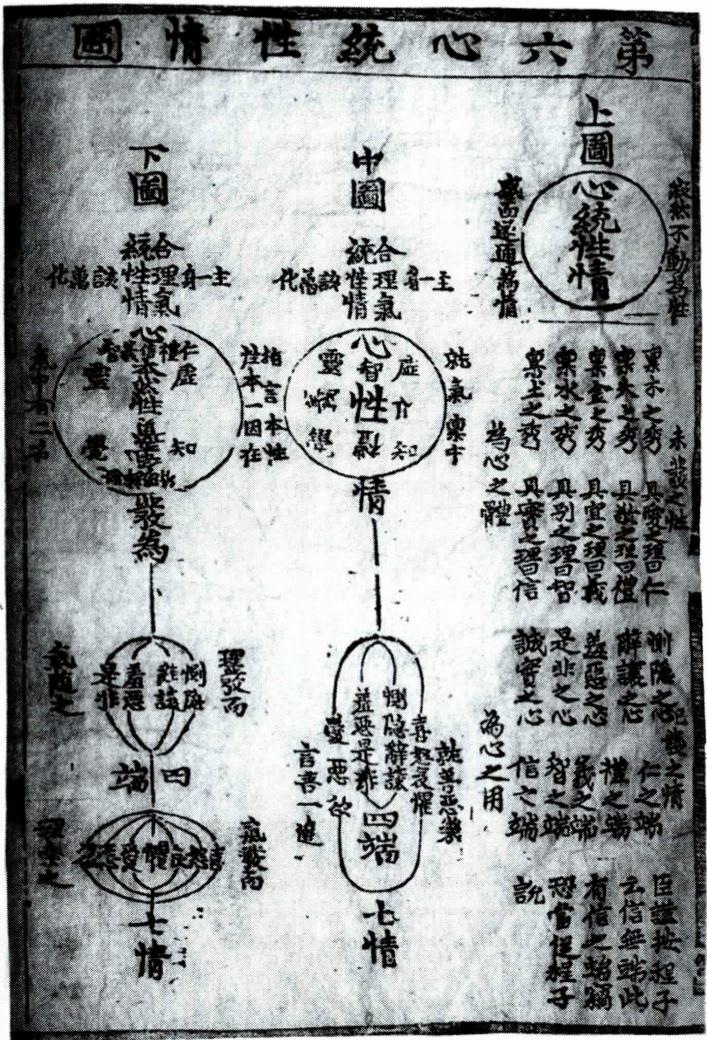 第六心統性情圖
上圖
寂然不動爲性
心統性情
感而遂通爲情
未發之性
稟木之秀 具愛之理曰仁
稟火之秀 具恭之理曰禮
稟金之秀 具宜之理曰義
稟水之秀 具別之理曰智
稟土之秀 具實之理曰信
為心之體
已發之情
惻隱之心 仁之端
辭讓之心 禮之端
羞惡之心 義之端
是非之心 智之端
誠實之心 信之端
為心之用
臣謹按程子
云信無端此
有信之端竊
恐當從程子
說
中圖
合理氣
統性情
主一身
該萬化
就氣稟中
心
虛
靈
智
性
知
覺
情
就善惡幾
言善一邊
喜怒哀懼
愛惡欲
惻隱辭讓
羞惡是非
四端
七情
下圖
合理氣
統性情
主一身
該萬化
指言本性
性本一因在
氣中有二名
心
虛
靈
仁
禮
本然性
知
覺
發為
理發而
氣隨之
惻隱
辭讓
羞惡
是非
四端
氣發而
理乘之
喜怒哀懼愛惡
七情